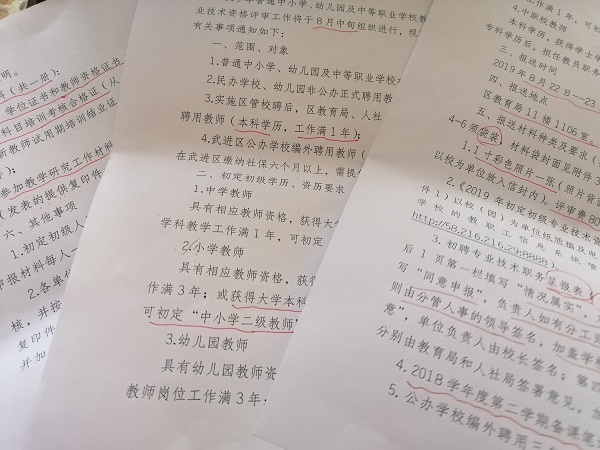 明。
（共一册）；
学位证书和教师资格证书
科目培训考核合格证（从
新教师试用期培训结业证
参加教学研究工作材料
（发表的提供复印件
六、其他事项
1.初定初级人
申报材料每人一
2.各单位
核，并按
复印件
并加
年普通中小学、幼儿园及中等职业学校教
业技术资格评审工作将于8月中旬组织进行，现
有关事项通知如下：
一、范围、对象
1.普通中小学、幼儿园及中等职业学校
2.民办学校、幼儿园非公办正式聘用教
3.实施区管校聘后，区教育局、人社
聘用教师（本科学历，工作满1年）；
4.武进区公办学校编外聘用教师（
在武进区缴纳社保六个月以上，需提
二、初定初级学历、资历要求
1.中学教师
具有相应教师资格，获得大
学科教学工作满1年，可初定
2.小学教师
具有相应教师资格，获得
作满3年；或获得大学本科
可初定“中小学二级教师”
3.幼儿园教师
具有幼儿园教师资
教师岗位工作满3年
4.中职校教师
本科学历，获得学士学
专科学历后，担任教员职务
三、报送时间
2019年8月22日—23
四、报送地点
区教育局11楼1106室。
五、报送材料种类及要求（
4-6须袋装，材料袋封面见附件3
1.1寸彩色照片一张（照片背
以校为单位放入信封内）。评审费80
2.《2019年初定初级专业技术资
件1）以校（园）为单位纸质稿及电
学校的教职工信息系统唯
http://58.216.216.29:8888）
3.初聘专业技术职务呈报表
后1页第一栏填写“情况属实”，
写“同意申报”，负责人如有分工
则由分管人事的领导签名，加盖学校
意”，单位负责人由校长签名；第四
分别由教育局和人社局签署意见，加
4.2018学年度第二学期备课笔
5.公办学校编外聘用三